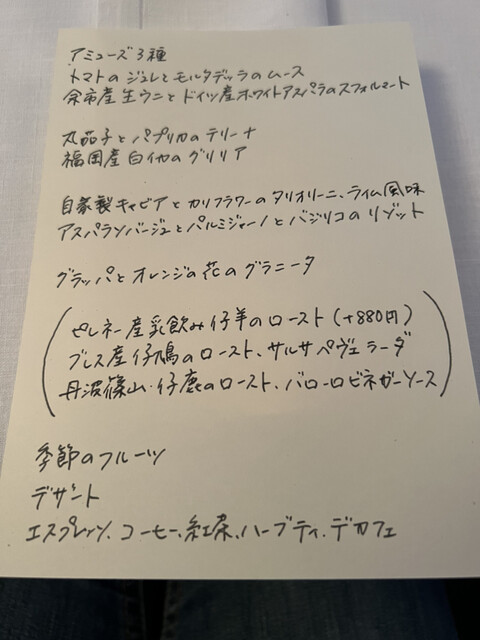 アミューズ3種
トマトのジュレとモルタデッラのムース
余市産生ウニとドイツ産ホワイトアスパラのスフォルマート
丸茄子とパプリカのテリーナ
福岡産白イカのグリリア
自家製キャビアとカリフラワーのタリオリーニ、ライム風味
アスパラソバージュとパルミジャーノとバジリコのリゾット
グラッパとオレンジの花のグラニータ
ピレネー産乳飲み仔羊のロースト(+880円)
ブレス産仔鳩のロースト、サルサペヴェラーダ
丹波篠山・仔鹿のロースト、バローロビネガーソース
季節のフルーツ
デザート
エスプレッソ、コーヒー、紅茶、ハーブティ、デカフェ